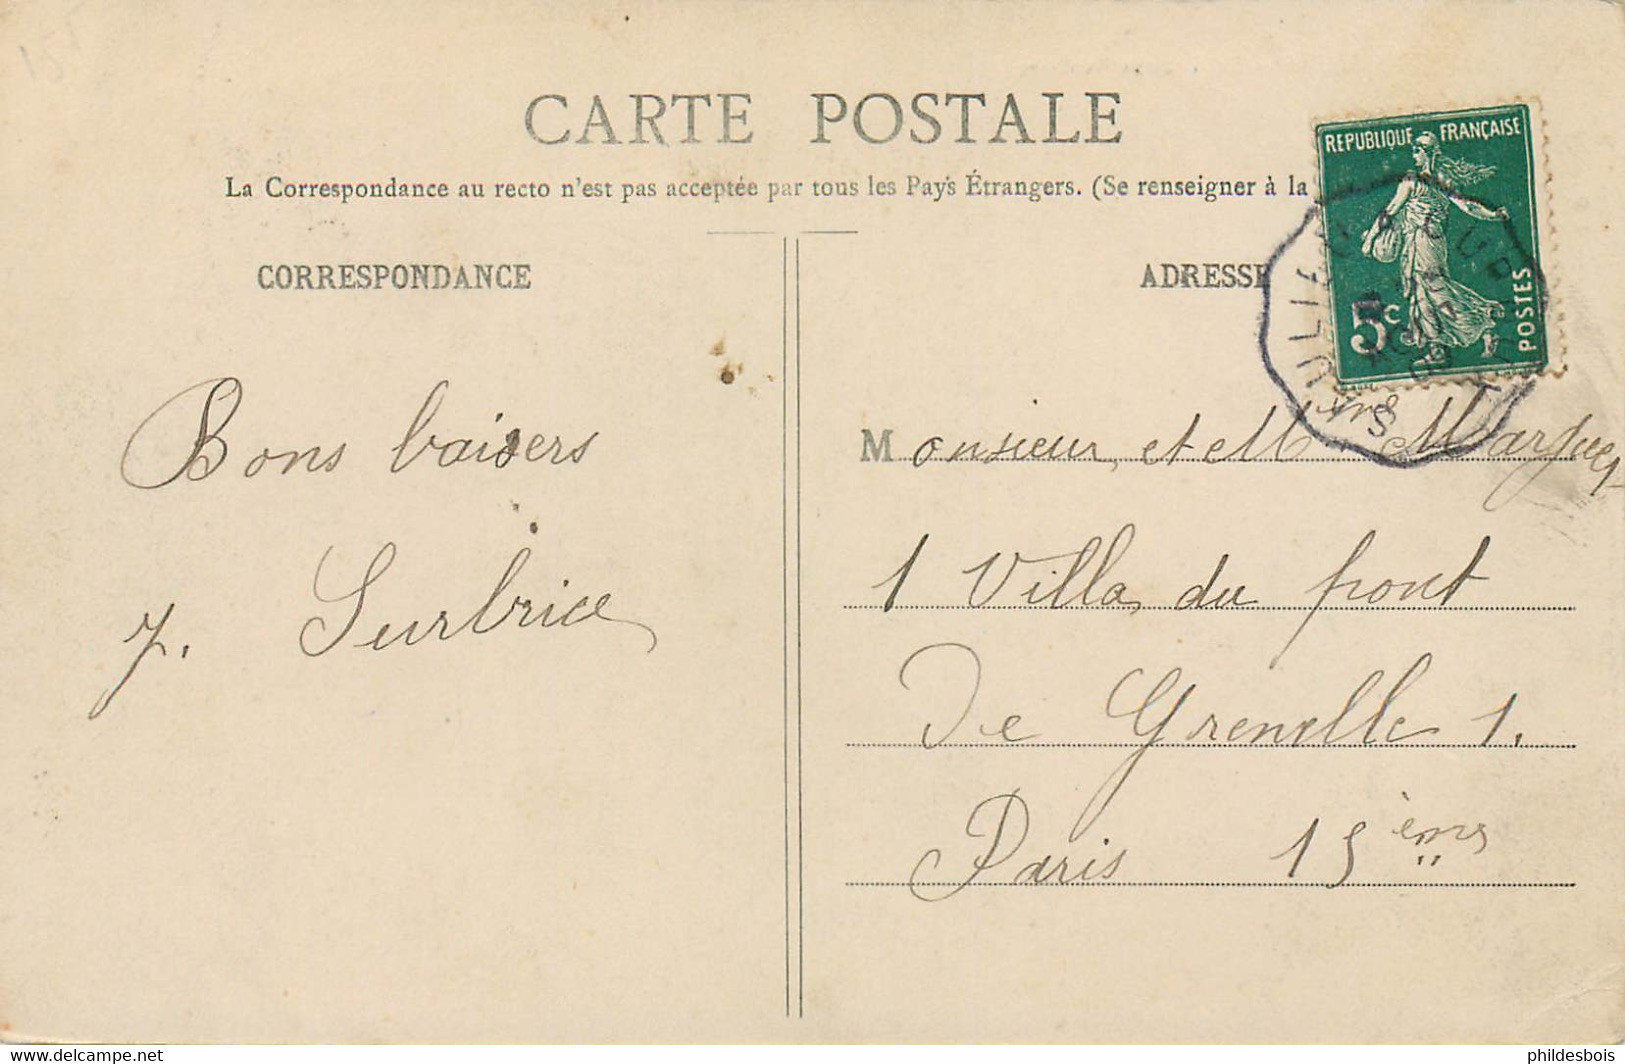 CARTE POSTALE
La Correspondance au recto n'est pas acceptée par tous les Pays Étrangers. (Se renseigner à la
REPUBLIQUE FRANÇAISE
5c
POSTES
CORRESPONDANCE
ADRESSE
Bons baisers
Monsieur et Mme
1 Villa du pont
De Grenelle 1.
Paris 15ème
www.delcampe.net
phildesbois